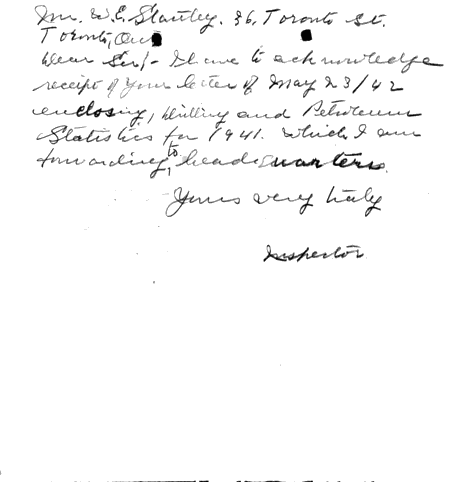 Mr. W. E. Stantley. 36, Toronto St.
Toronto, Ont
Dear Sir/- I have to acknowledge
receipt of your letter of May 23/42
enclosing, Drilling and Petroleum
Statistics for 1941. which I am
forwarding, to headquarters.
Yours very truly
Inspector